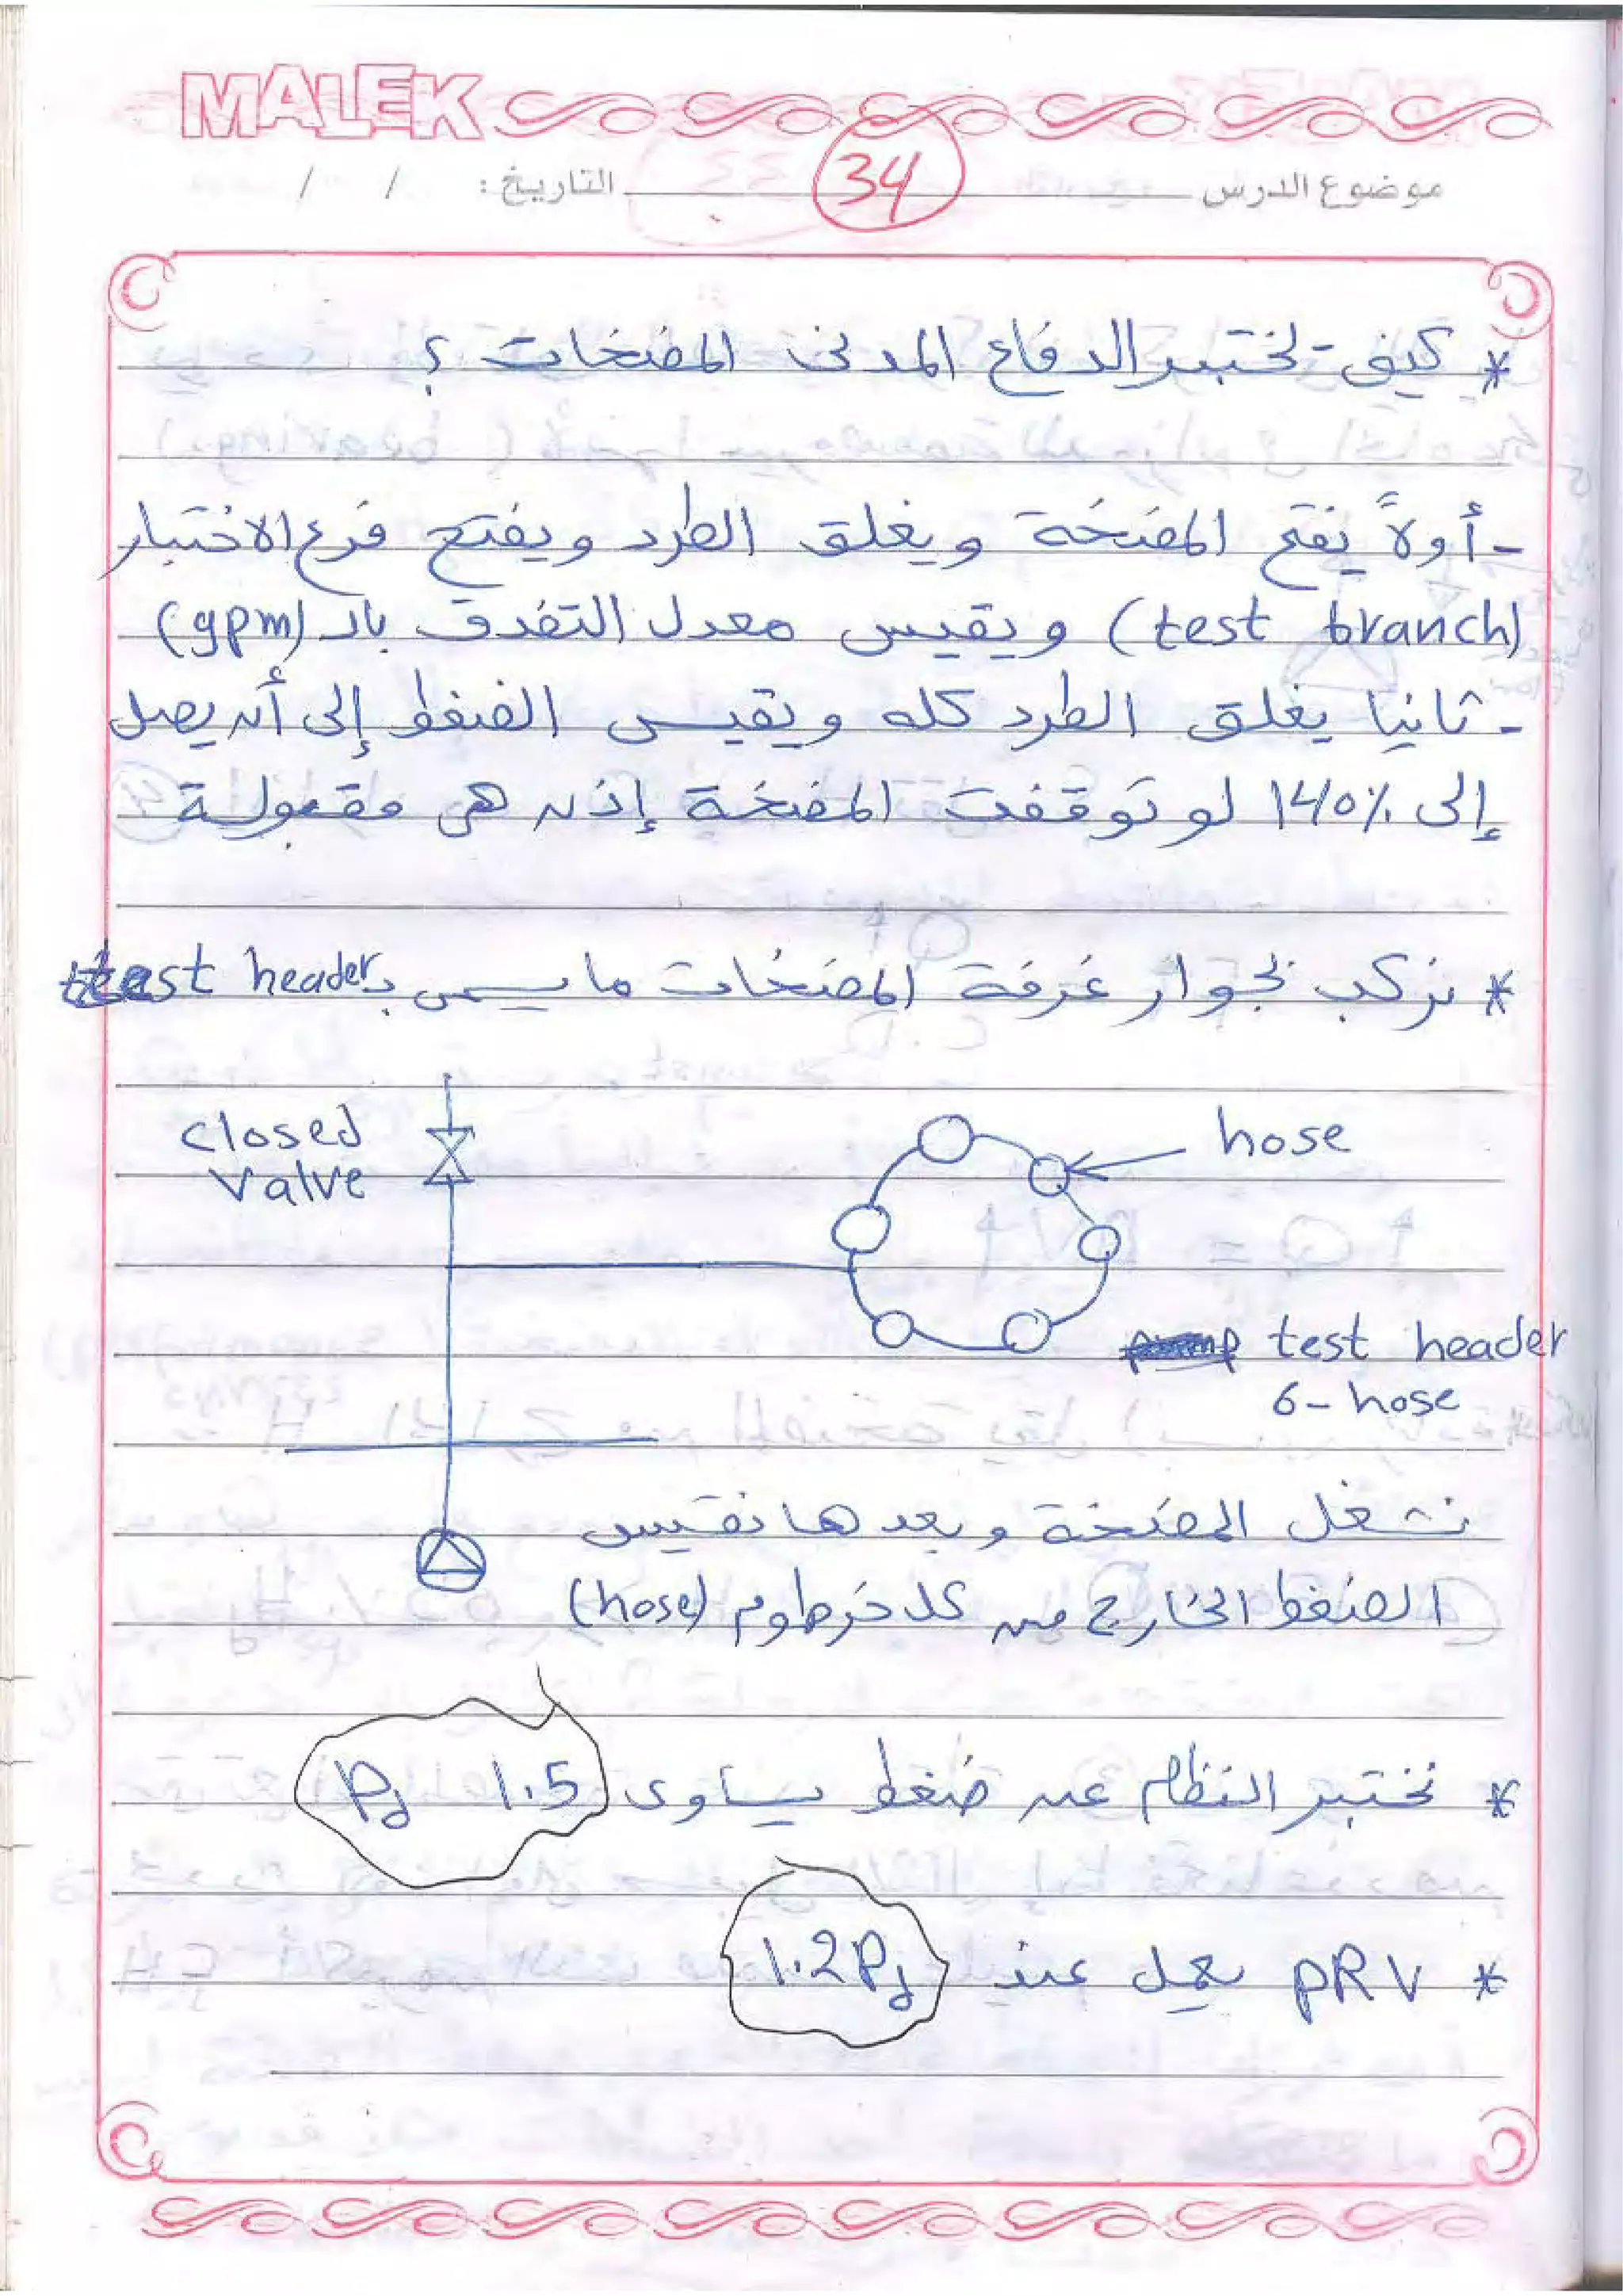 MALEK
34
موضوع الدرس التاريخ: / /
* كيف تختبر الدفاع المدنى المضخات ؟
- أولاً يفتح المضخة ويغلق الطرد ويفتح فرع الاختبار
(test branch) ويقيس معدل التدفق بالـ (gpm)
- ثانيا يغلق الطرد كله ويقيس الضغط إلى أن يصل
إلى 140% لو توقفت المضخة إذن هى مقبولة
* نركب بجوار غرفة المضخات ما يسمى بـ test header
closed
valve
hose
test header
6- hose
نشغل المضخة وبعدها نقيس
الضغط الخارج من كل خرطوم (hose)
* نختبر النظام عند ضغط يساوى 1.5 Pd
* PRV يعمل عند 1.2Pd